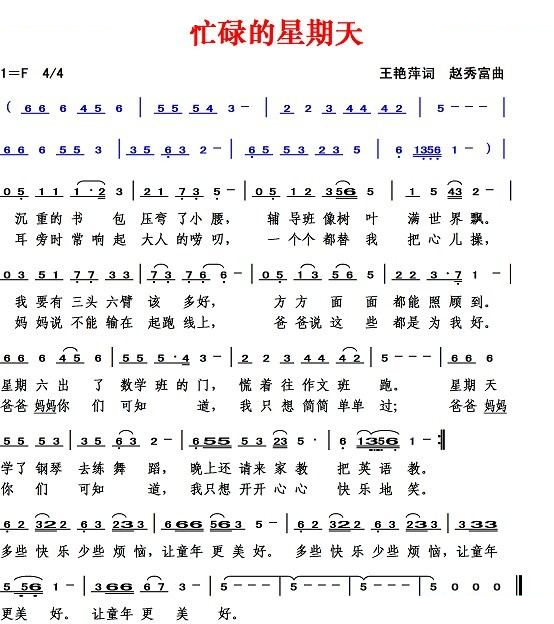 忙碌的星期天
1=F 4/4 王艳萍词 赵秀富曲
( 6 6 6 4 5 6 | 5 5 5 4 3 - | 2 2 3 4 4 4 2 | 5 - - - |
6 6 6 5 5 3 | 3 5 6 3 2 - | 6 5 5 3 2 3 5 | 6 1356 1 - ) |
0 5 1 1 1·2 3 | 2 1 7 3 5 - | 0 5 1 1 2 3 56 | 1 5 43 2 - |
沉重的书包压弯了小腰, 辅导班像树叶满世界飘。
耳旁时常响起大人的唠叨, 一个个都替我把心儿操,
0 3 5 1 7 7 3 3 | 7 3 7 6 6 - | 0 6 5 1 3 5 6 | 2 2 3·7 1 - |
我要有三头六臂该多好, 方方面面都能照顾到。
妈妈说不能输在起跑线上, 爸爸说这些都是为我好。
6 6 6 4 5 6 | 5 5 5·4 3 - | 2 2 3 4 4 4 2 | 5 - - - | 6 6 6 5 6
星期六出了数学班的门, 慌着往作文班跑。 星期天
爸爸妈妈你们可知道, 我只想简简单单过; 爸爸妈妈
5 5 5 3 | 3 5 6 3 2 - | 6 55 5 3 23 5 | 6 1356 1 - :|
学了钢琴去练舞蹈, 晚上还请来家教把英语教。
你们可知道, 我只想开开心心快乐地笑。
6 2 322 6 3 233 | 1 666 5 6 3 - | 6 2 322 6 3 233 | 1 2 333
多些快乐少些烦恼, 让童年更美好。 多些快乐少些烦恼, 让童年
5 5 56 1 - | 3 666 6 7 6 5 | 5 - - - | 5 - - - | 5 0 0 0 ‖
更美好。让童年更美好。